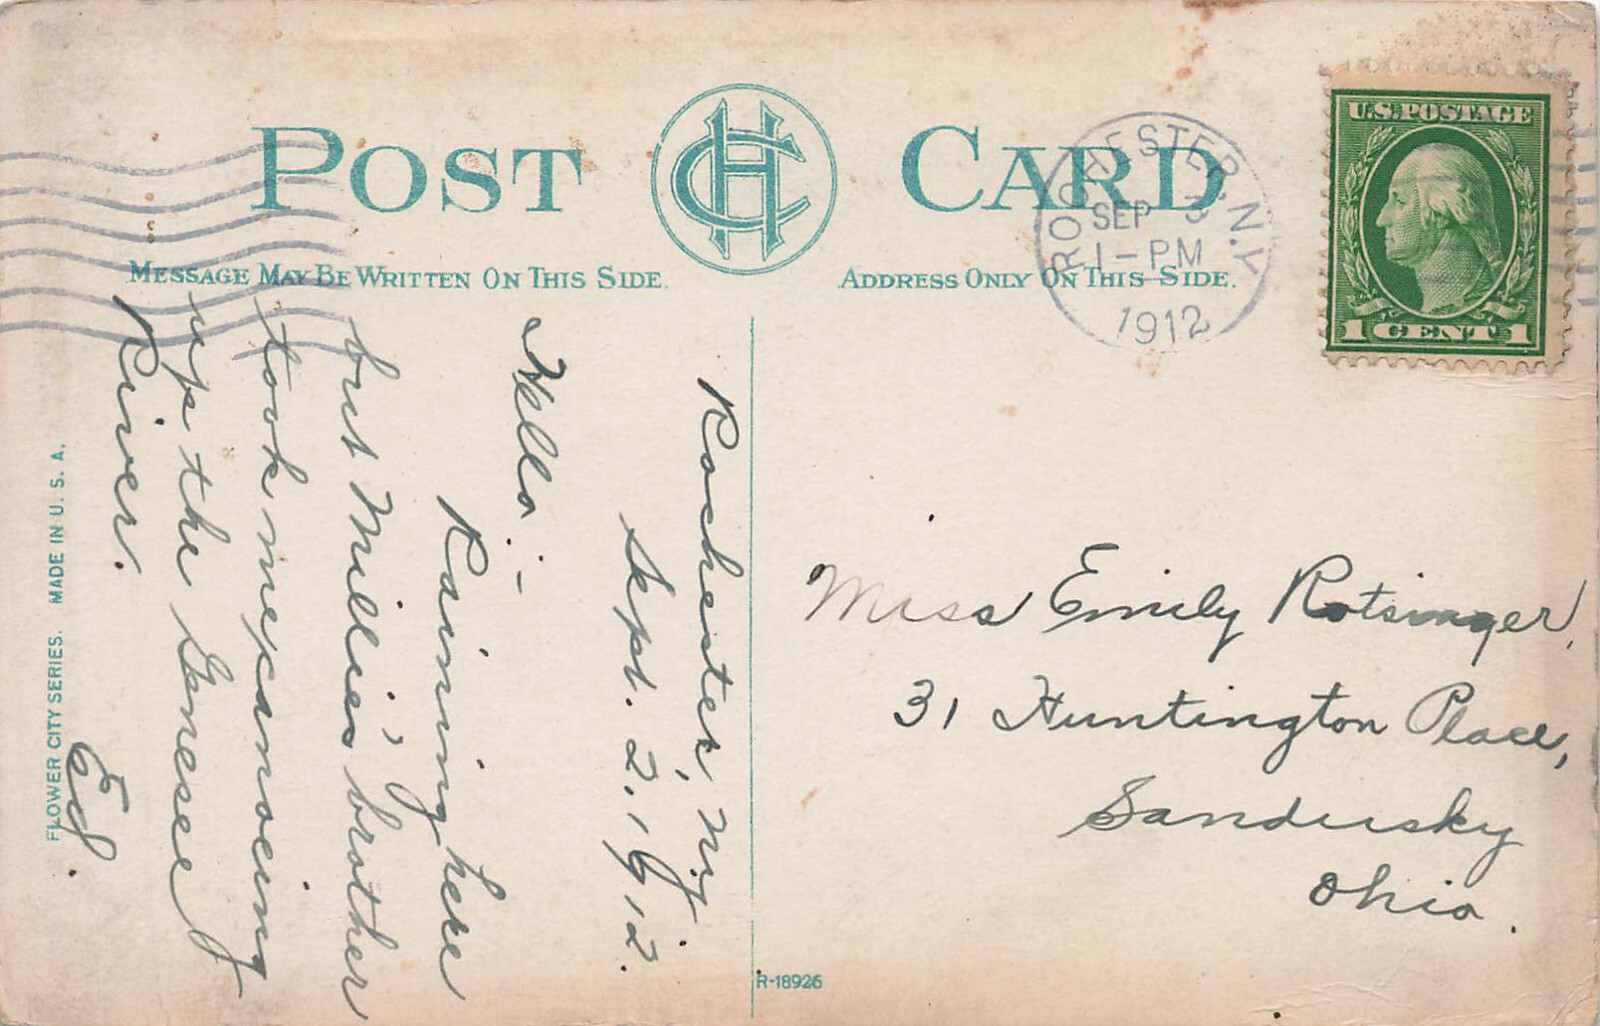 POST CARD
MESSAGE MAY BE WRITTEN ON THIS SIDE.
ADDRESS ONLY ON THIS SIDE.
ROCHESTER, N.Y.
SEP 3
1-PM
1912
U.S. POSTAGE
1 CENT 1
Rochester, N.Y.
Sept. 2, 1912.
Hello:-
Raining here
but Millie's brother
took me canoeing
up the Genesee
River.
Ed.
Miss Emily Rotsinger,
31 Huntington Place,
Sandusky
Ohio.
FLOWER CITY SERIES. MADE IN U. S. A.
R-18926